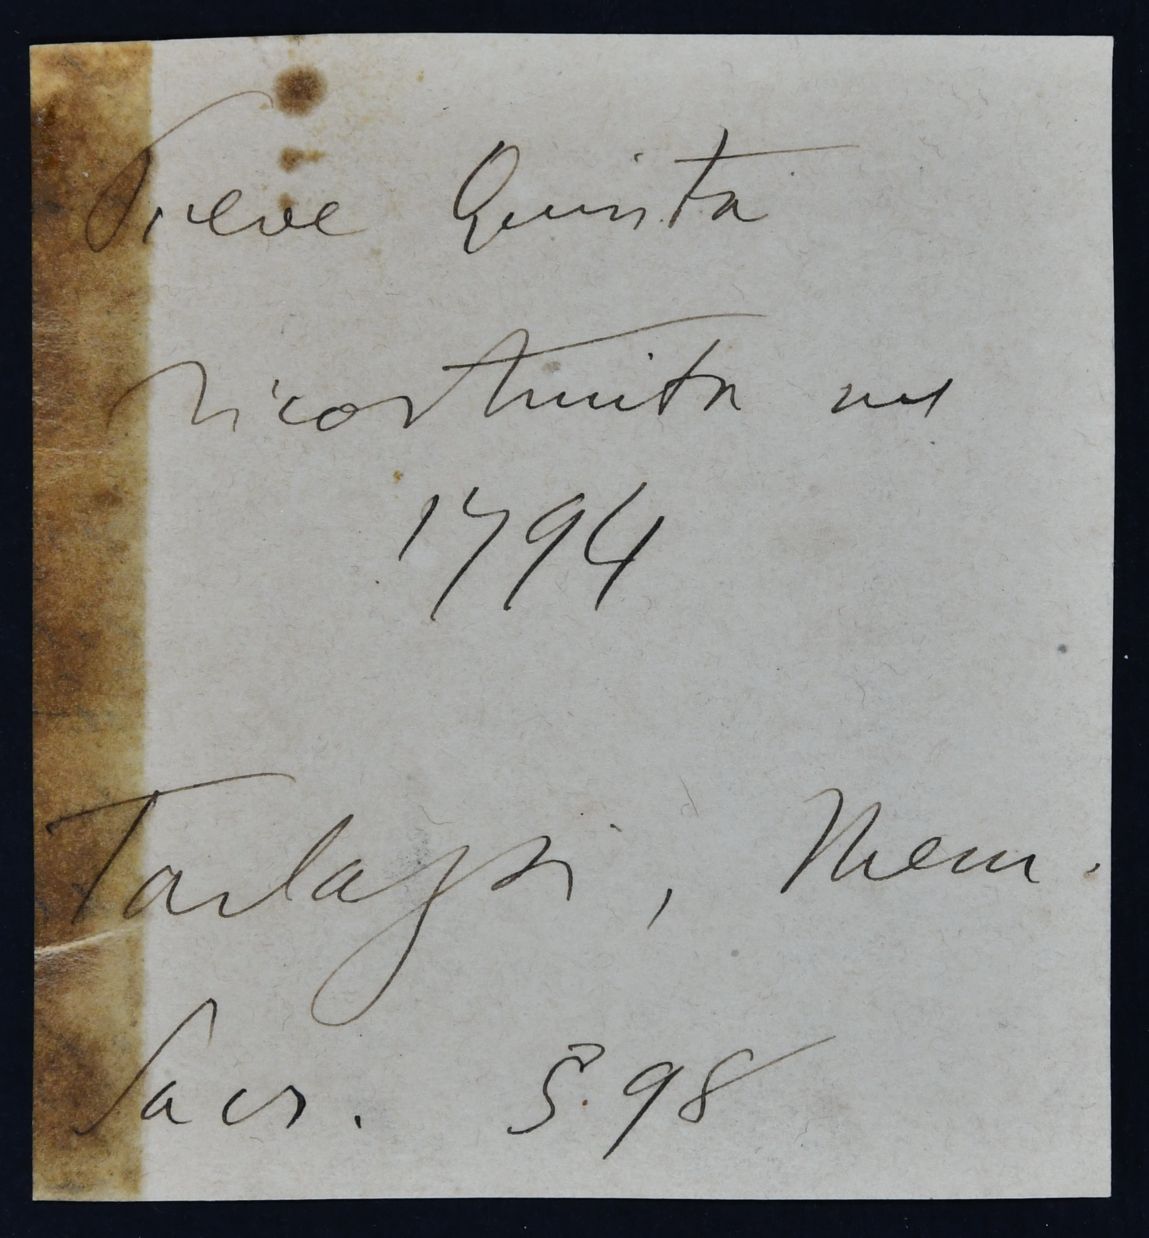 Pieve Quinta
ricostruita nel
1794
Tarlazzi, Mem.
Sacr. 598